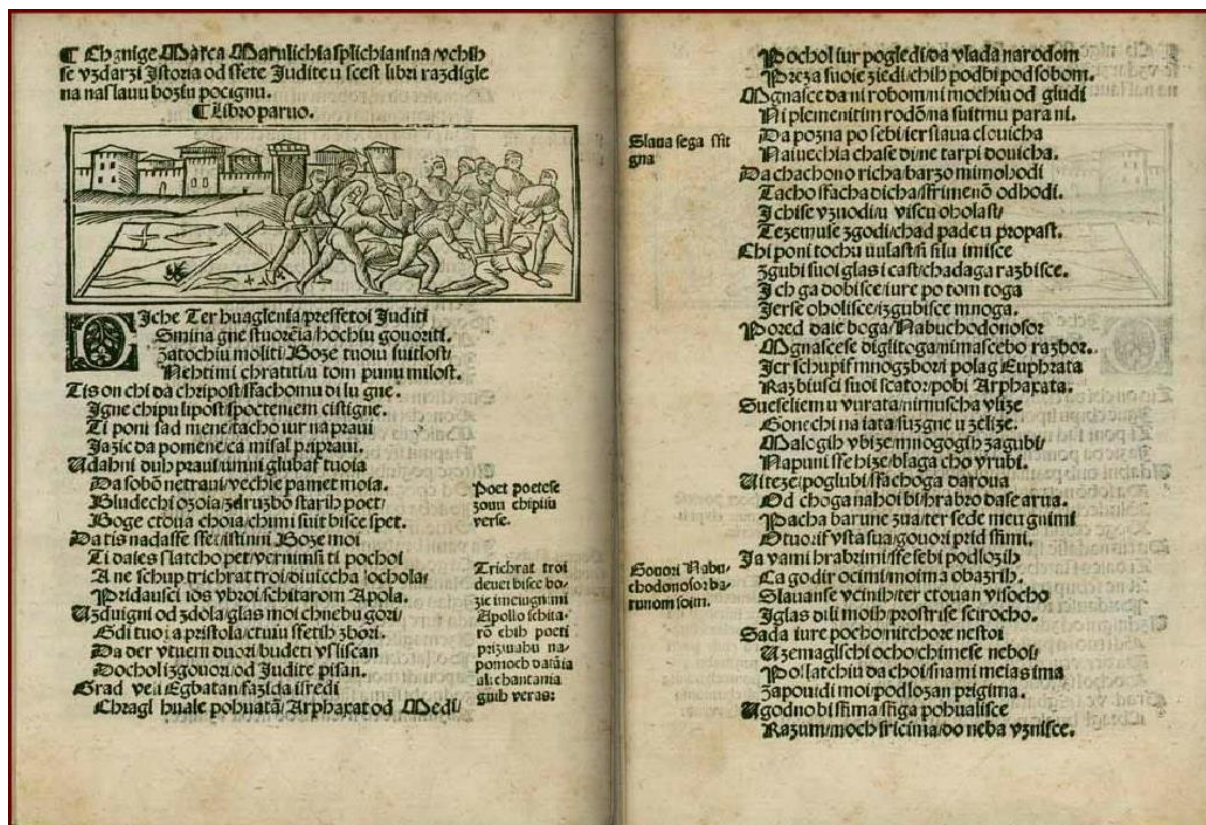 ¶ Chgnige Marca Marulichia splichianina/vchih
se vzdarzi Istoria od ssete Iudite u scest libri razdigle
na na slauu boziu pocignu.
¶ Libro paruo.
DIche Ter huaglenia/presse toi Iuditi
Smina gne stuorēia/hochiu gouoriti.
Zato chiu moliti/Boze tuoiu suitlost/
Nehtimi chratiti/u tom punu milost.
Tis on chi da chripost/ssachomu dilu gne.
I gne chipu lipost/spocteniem cistigne.
Ti poni sad mene/tacho iur na praui
Iazic da pomene/ca misal pripraui.
Udahni duh praui/umni glubaf tuoia
Da sobōn netraui/vechie pamet moia.
Bludechi ozoia/zdruzbō starih poet/
Boge ctoua choia/chimi suit bisce spet.
Da tis nadasse sfet/istinni Boze moi
Ti daies slatcho pet/vernimīn ti pochoi
A ne schup trichrat troi/diviccha ochola/
Pridausci ios vbroi/schitarom Apola.
Uzduigni od zdola/glas moi chnebu gori/
Gdi tuoia pristola/ctuiu ssetih zbori.
Da der vtuem duori/budeti vsliscan
Dochol izgouori/od Iudite pisan.
Grad veli Egbatan/sazida i sredi
Chragl huale pohuatā/Arphaxat od Medi/
Poet poete se
zouu chi pisu
verse.
Trichrat troi
deuet bisce bo-
zic imeiugnimi
Apollo schita-
rō chih poeti
prizivahu na-
pomoch
ali chantania
gnih versa:
Pochol iur pogledi/da vlada narodom
Preza suoie ziedi/chih podbi pod sobom.
Mgnaisce da ni robom/ni mochiu od gludi
Ni plemenitim rodō/na suitmu para ni.
Da pozna po sebi/ier slaua clouicha
Naiuechia chase di/ne tarpi douicha.
Da chachono richa/barzo mimohodi
Tacho ssacha dicha/ssrimenō odhodi.
I chi se vznodi/u viscu oholast/
Tezemu se zgodi/chad pade u propast.
Chi poni tochu uulastīn silu imisce
Zgubi suoi glas i cast/chada ga razbisce.
I ch ga dobisce/iure po tom toga
Ier se oholisce/izgubisce mnoga.
Pored daie boga/Nabuchodonosor
Mgnasce se diglitoga/nimasce bo razbor.
Ier schupif mnog zbor/i polag Euphrata
Razbiusci suoi scator/pobi Arphaxata.
Sueseliem u vurata/nimuscha vlize
Gonechi na iata/suzgne u zelize.
Malogih vbize/mnogogih zagubi/
Napuni sse hize/blaga cho vrubi.
Uiteze/poglubi/ssachoga daroua
Od choga nahoi bi/hrabro da se arua.
Pacha barune zua/ter sede meu gnimi
Otuori vsta sua/gouori prid ssimi.
Ia vami hrabrimi/sse sebi podlozih
Ca godir ocimi/moima obazrih.
Slauan se vcinih/ter ctouan visocho
I glas dili moih/prostri se scirocho.
Sada iure pocho/nitchore nestoi
U zemaglschi ocho/chi me se neboi/
Pol latchiu da choi/snami meias ima
Zapouidi moi/podlozan prigima.
Ugodno bi ssima/ssi ga pohualisce
Razum/moch sricima/do neba vznisce.
Slaua sega ssit
gna
Gouori Nabu-
chodonosor ba-
runom soim.